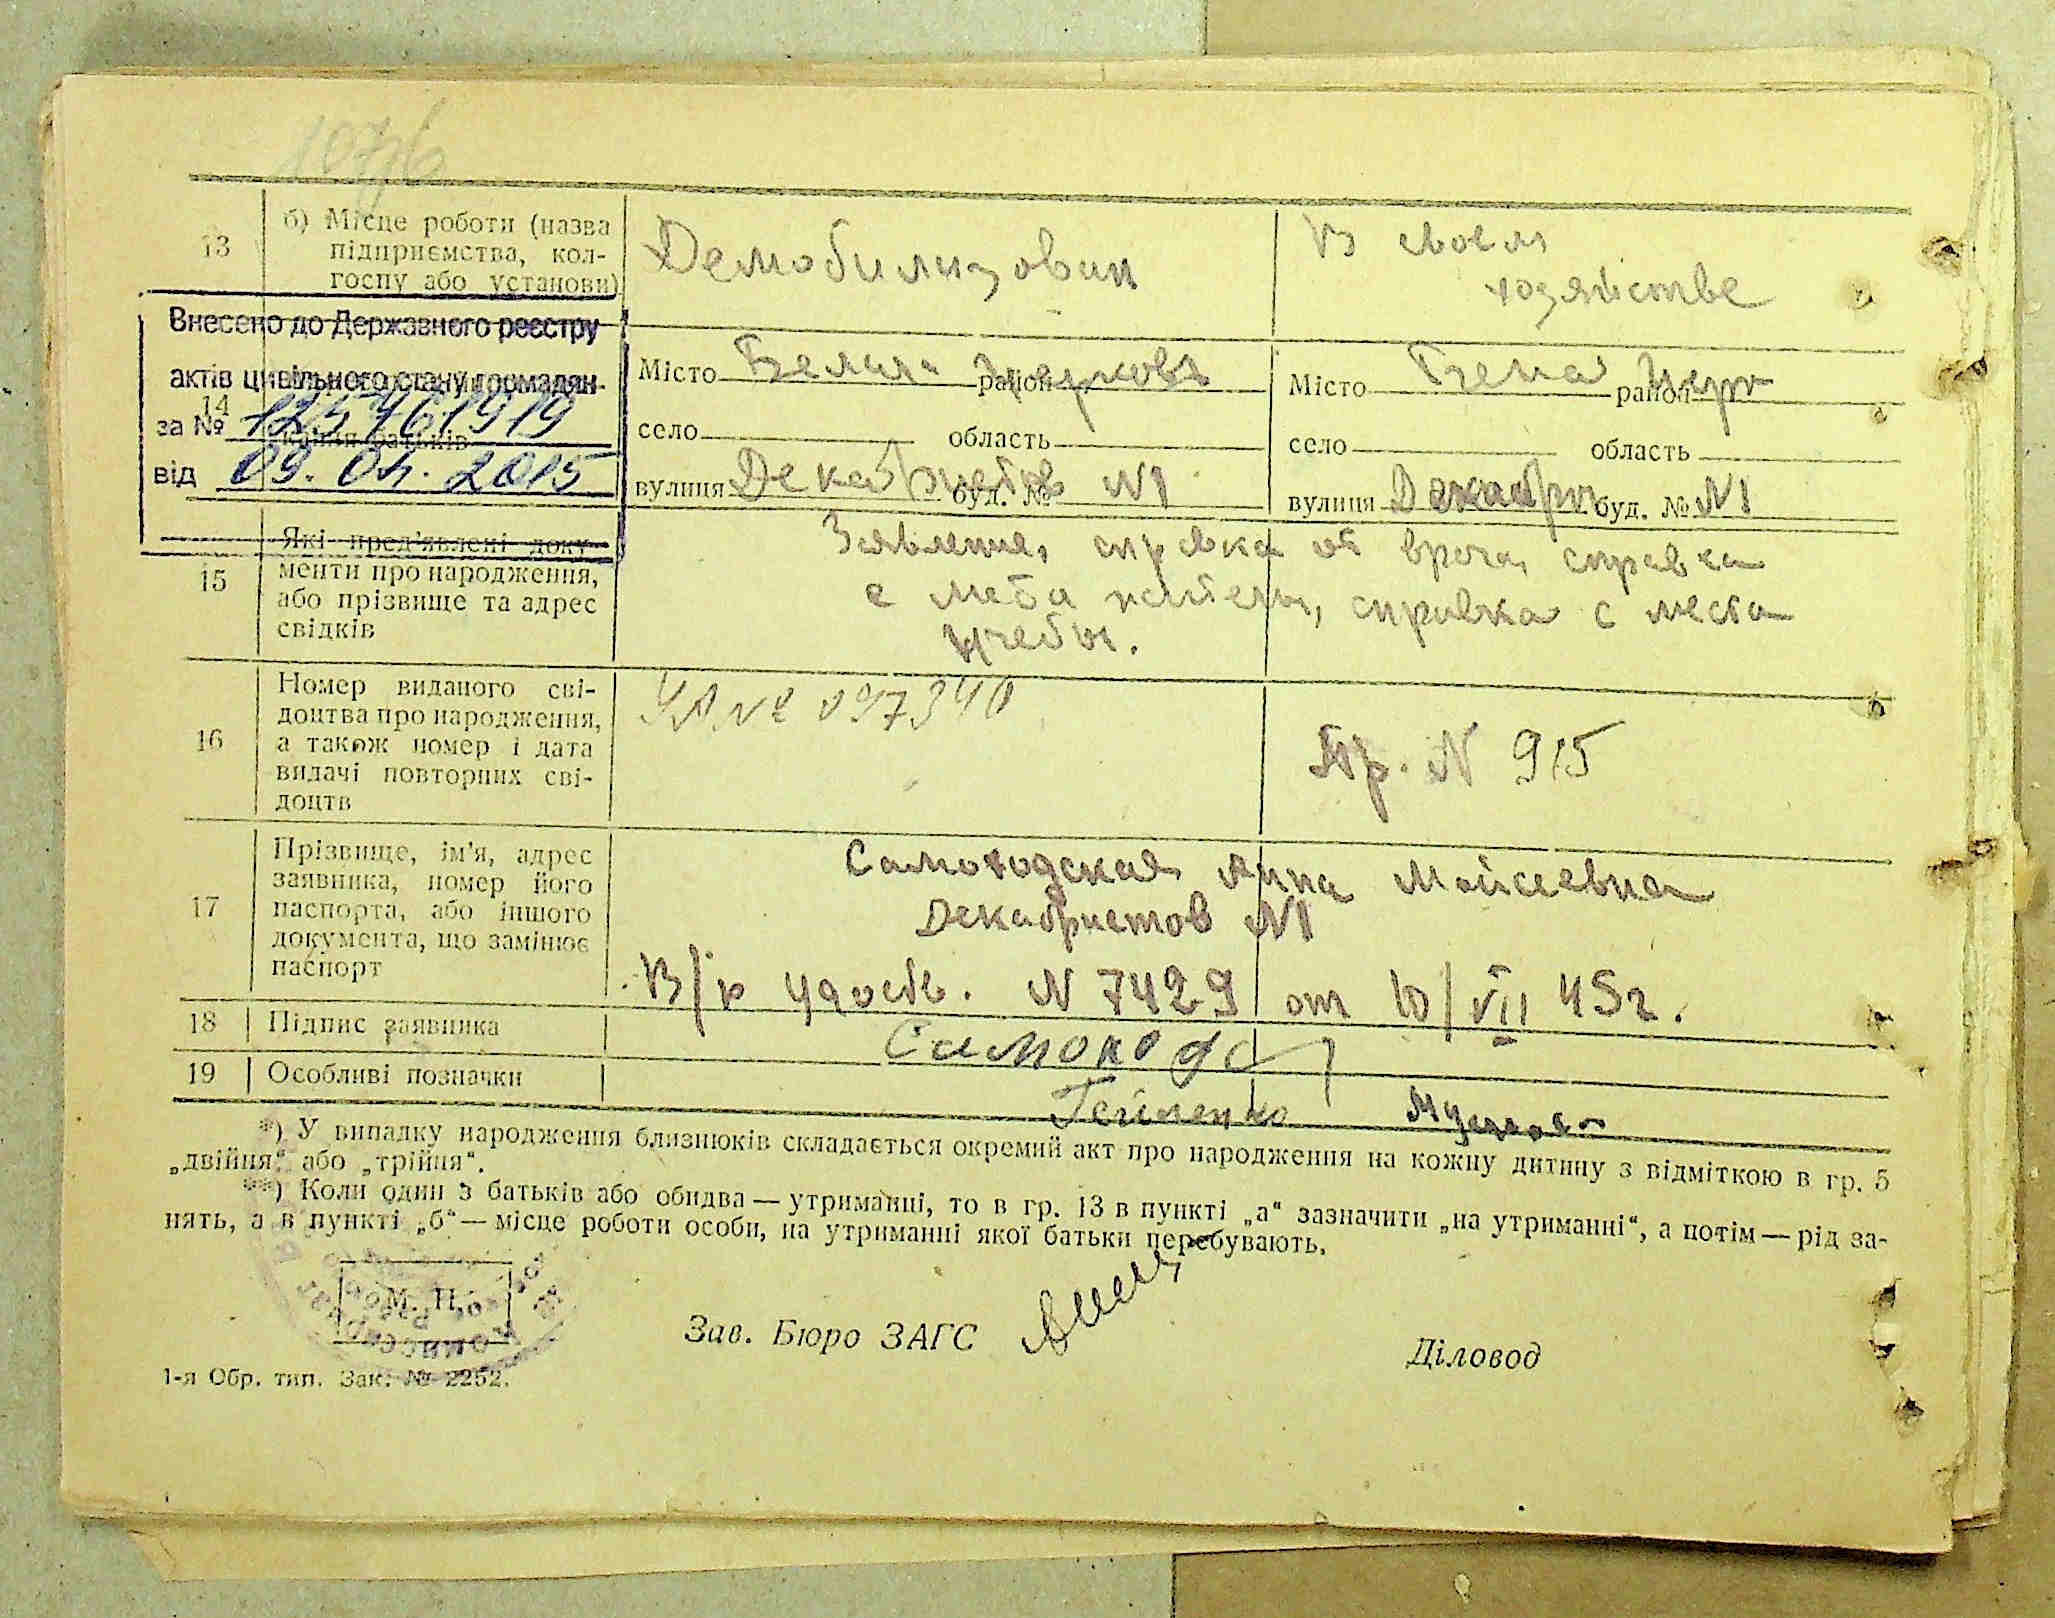 1076
13
б) Місце роботи (назва
підприємства, кол-
госпу або установи)
Демобилизован
В своем
хозяйстве
Внесено до Державного реєстру
актів цивільного стану громадян
за №
від 09. 04. 2015
14
кання батьків
Місто Белая район Церковь
село область
вулиця Декабристов буд. № N1
Місто Бела район Церк
село область
вулиця Декабри буд. № N1
15
Які пред'явлені доку-
менти про народження,
або прізвище та адрес
свідків
Заявление, справка от врача, справка
с места
справка с места
учебы.
16
Номер виданого сві-
доцтва про народження,
а також номер і дата
видачі повторних сві-
доцтв
№ 097340
Пр. N 915
17
Прізвище, ім'я, адрес
заявника, номер його
паспорта, або іншого
документа, що замінює
паспорт
Самоходская Анна Мойсеевна
Декабристов N1
В/р удост. N 7429 от 10/VII 45г.
18 Підпис заявника
Самоход
19 Особливі позначки
*) У випадку народження близнюків складається окремий акт про народження на кожну дитину з відміткою в гр. 5
„двійня“ або „трійня“.
**) Коли один з батьків або обидва — утриманні, то в гр. 13 в пункті „а“ зазначити „на утриманні“, а потім — рід за-
нять, а в пункті „б“ — місце роботи особи, на утриманні якої батьки перебувають.
М. П.
Зав. Бюро ЗАГС
Діловод
1-я Обр. тип. Зак. № 2252.